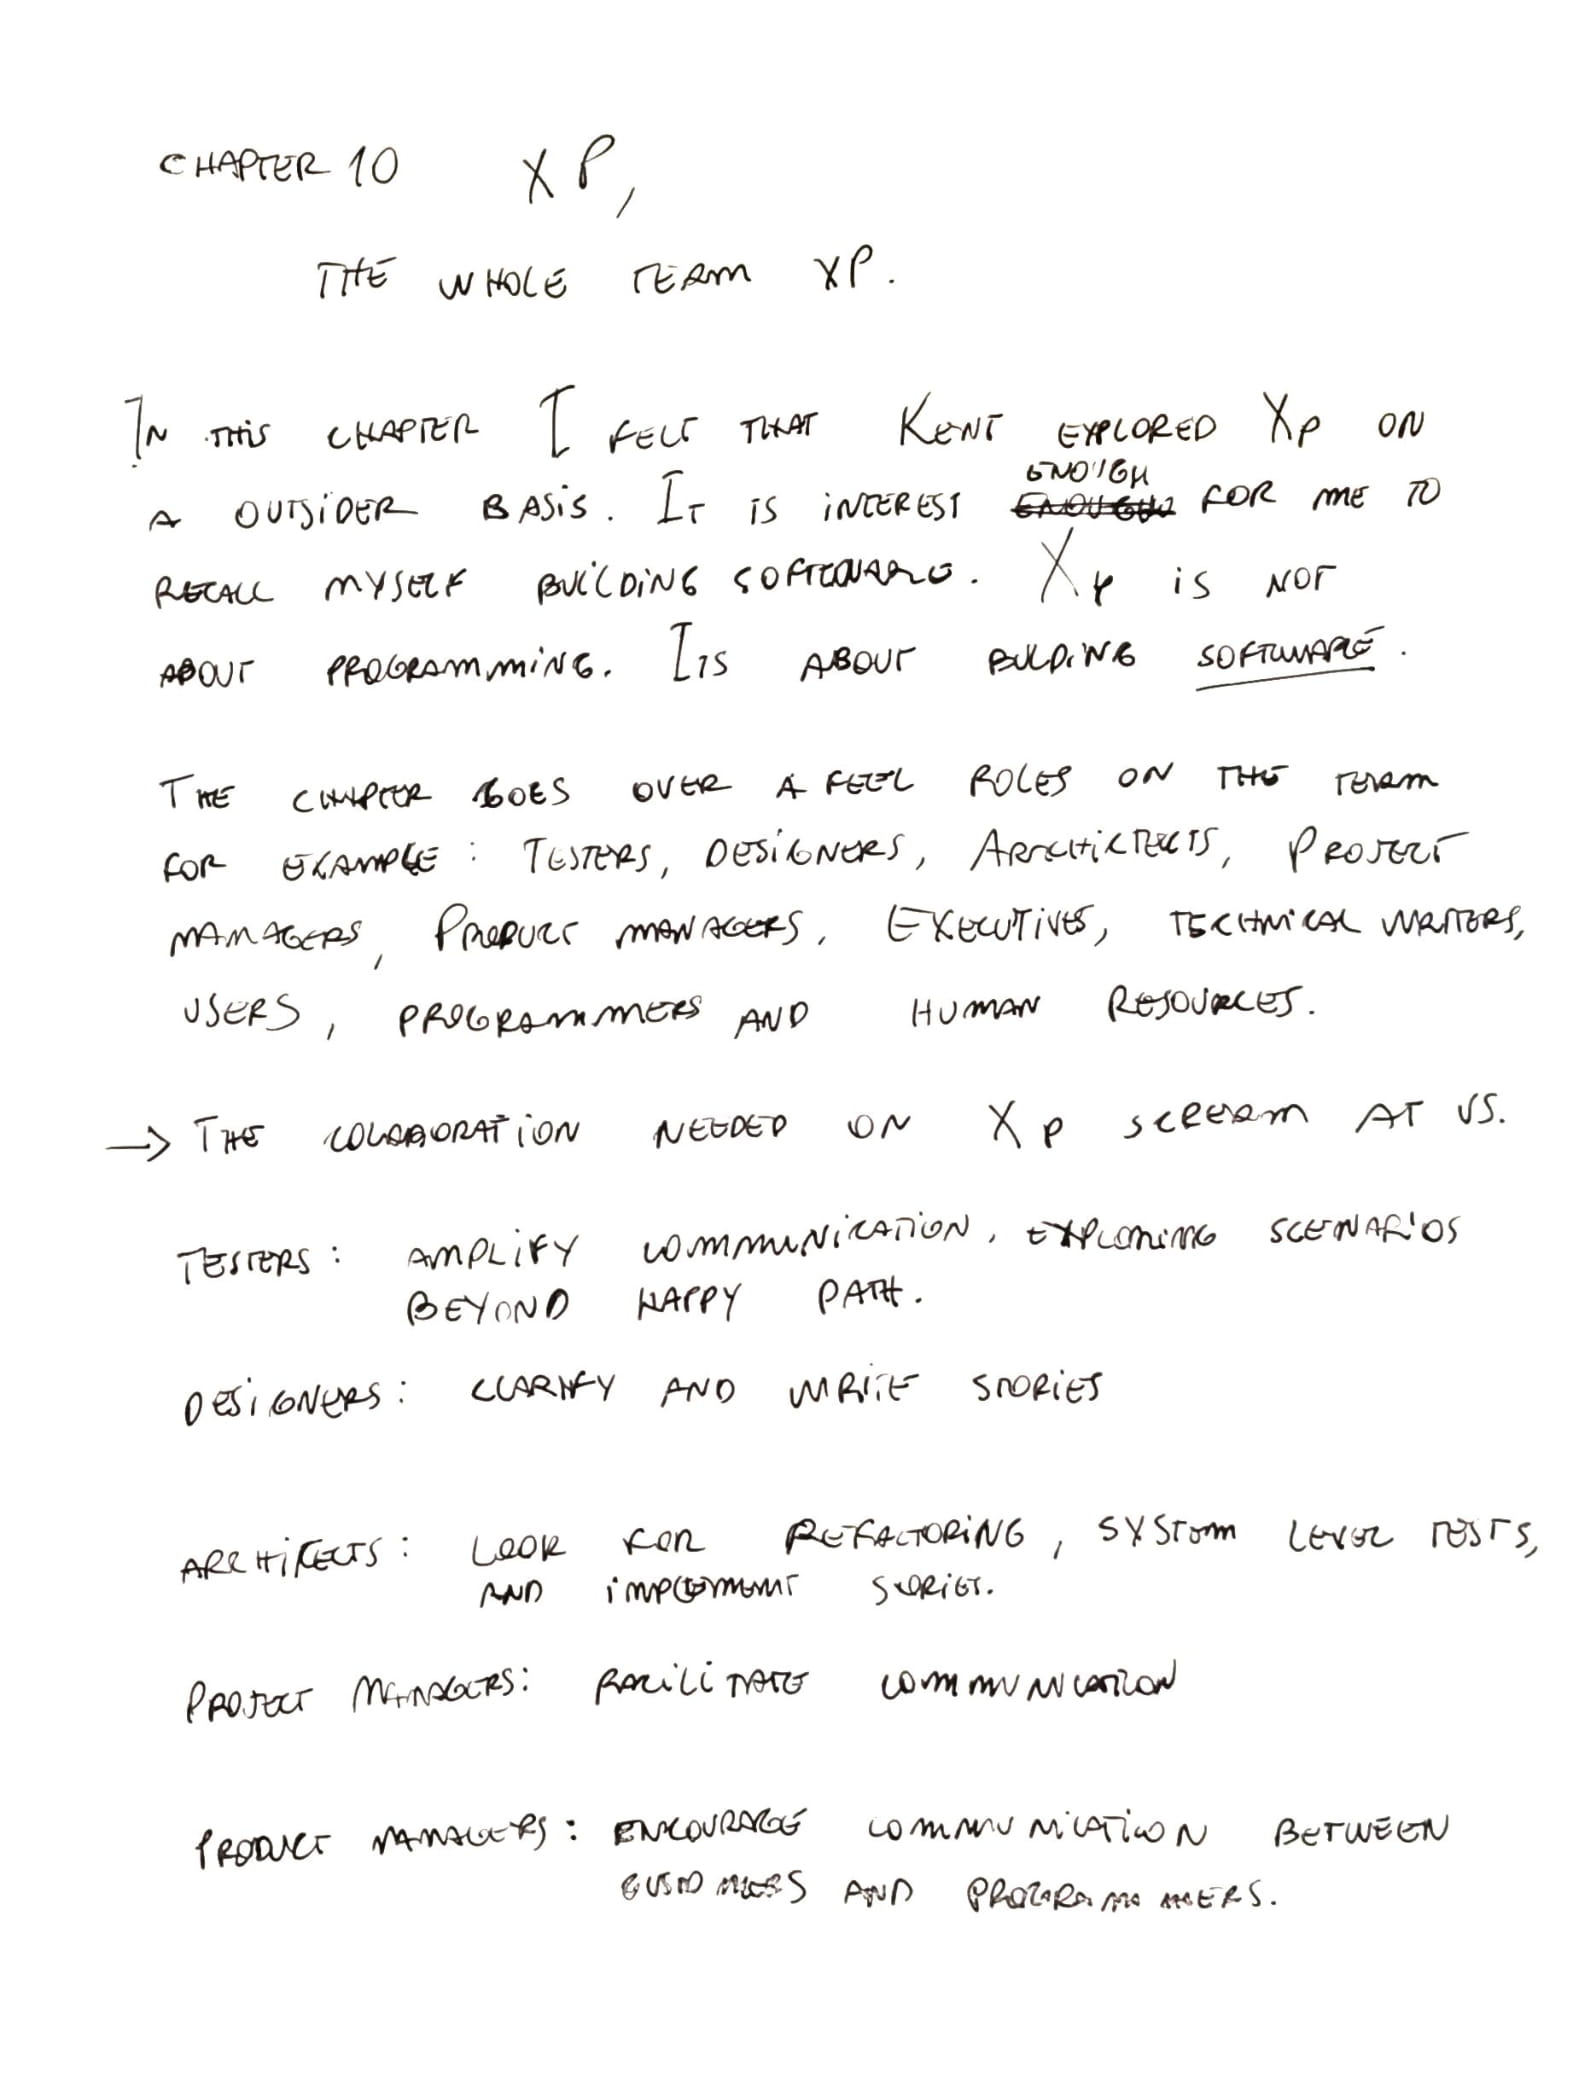 CHAPTER 10 XP,
THE WHOLE TEAM XP.
IN THIS CHAPTER I FELT THAT KENT EXPLORED XP ON
ENOUGH
A OUTSIDER BASIS. IT IS INTEREST ENOUGH FOR ME TO
RECALL MYSELF BUILDING SOFTWARE. XP IS NOT
ABOUT PROGRAMMING. ITS ABOUT BULDING SOFTWARE.
THE CHAPTER GOES OVER A FEEL ROLES ON THE TEAM
FOR EXAMPLE: TESTERS, DESIGNERS, ARCHICTECTS, PROJECT
MANAGERS, PRODUCT MANAGERS, EXECUTIVES, TECHNICAL WRITERS,
USERS, PROGRAMMERS AND HUMAN RESOURCES.
→ THE COLABORATION NEEDED ON XP SCREAM AT US.
TESTERS: AMPLIFY COMMUNICATION, EXPLORING SCENARIOS
BEYOND HAPPY PATH.
DESIGNERS: CLARIFY AND WRITE STORIES
ARCHITECTS: LOOK FOR REFACTORING, SYSTEM LEVEL TESTS,
AND IMPLEMENT STORIES.
PROJECT MANAGERS: FACILITATE COMMUNICATION
PRODUCT MANAGERS: ENCOURAGE COMMUNICATION BETWEEN
CUSTOMERS AND PROGRAMMERS.